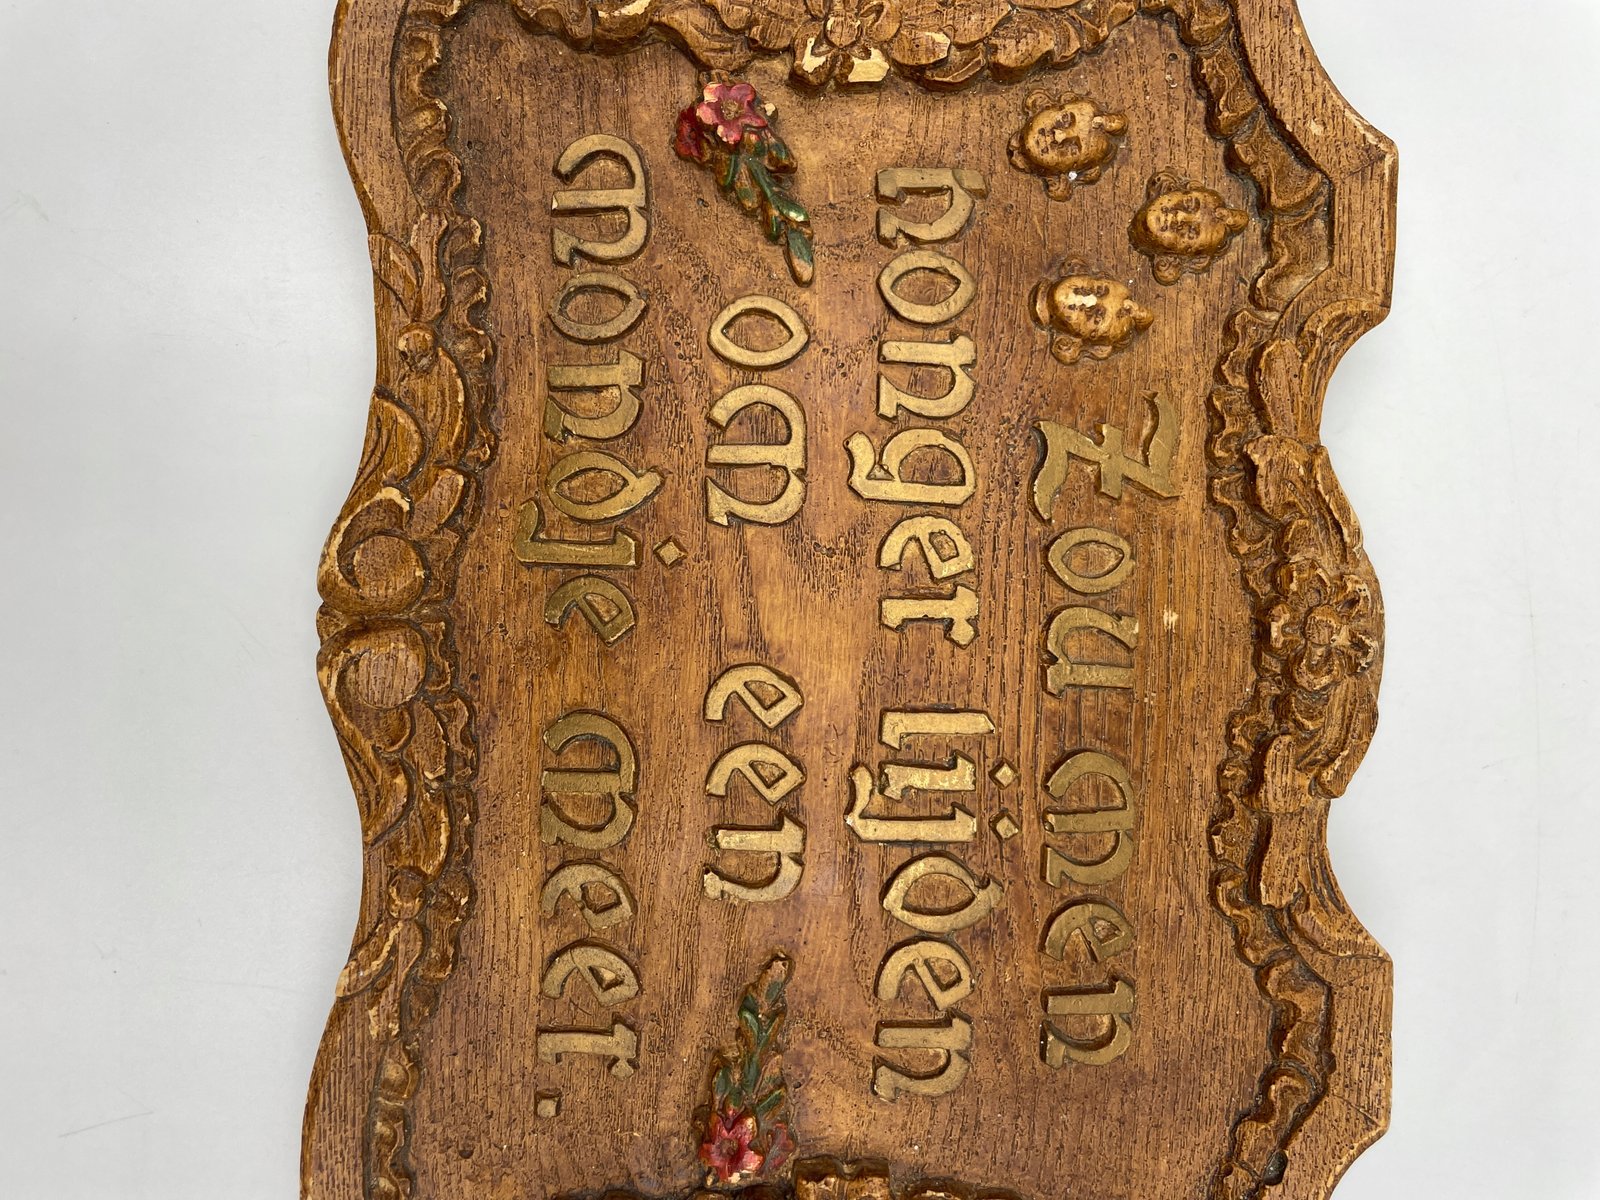 Zou men
honger lijden
om een
mondje meer.